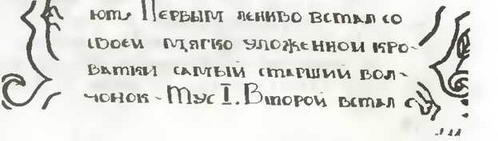 ют. Первым лениво встал со
своей мягко уложенной кро-
ватки самый старший вол-
чонок - Тус I. Второй встал с